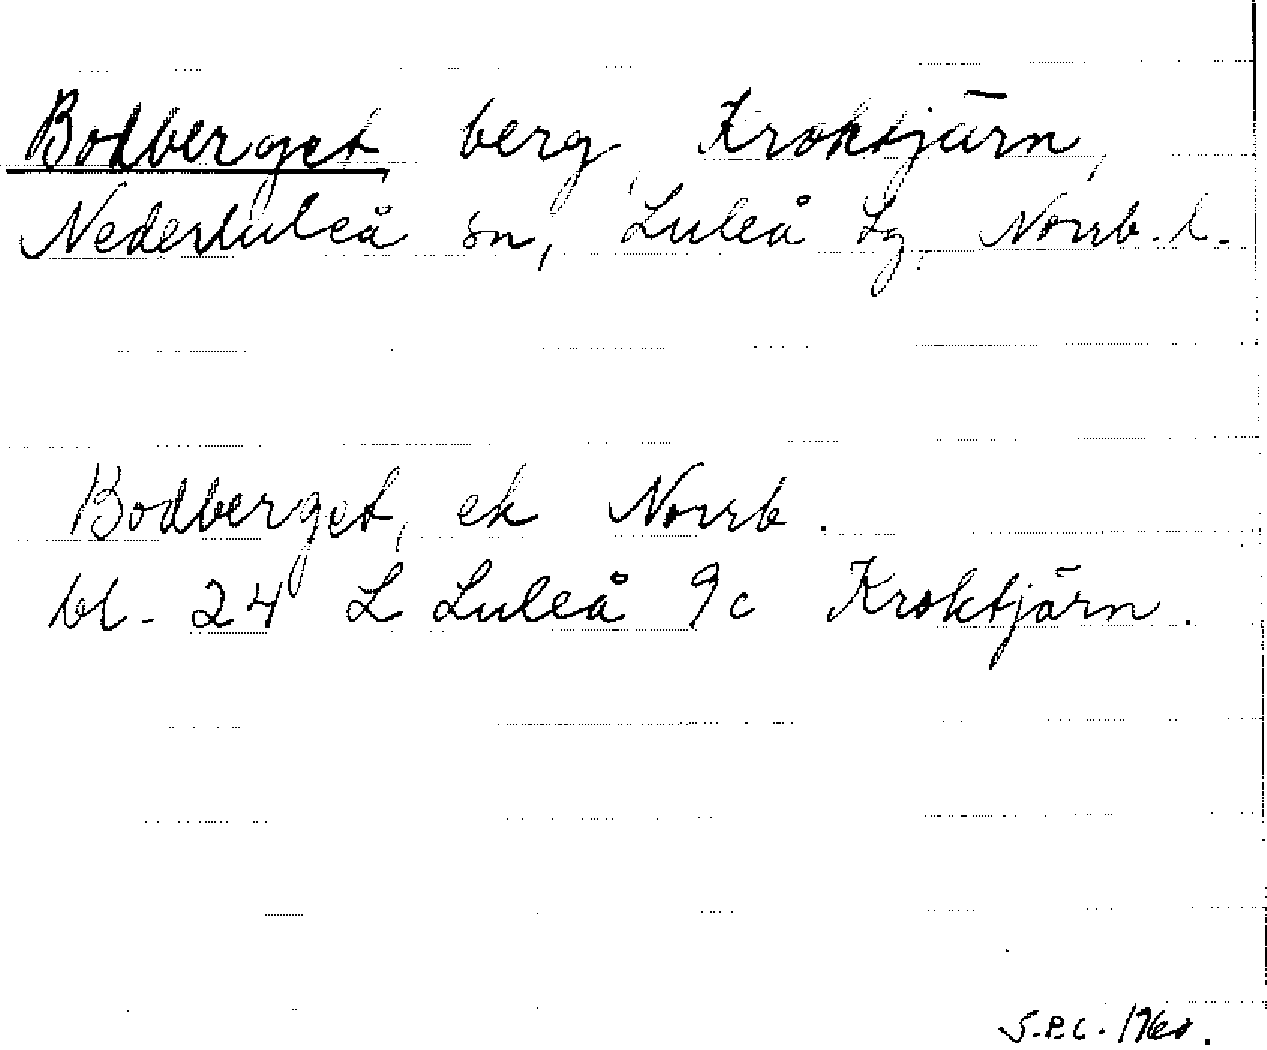 Bodberget, berg, Kroktjärn,
Nederluleå sn, Luleå tg. Norrb. l.
Bodberget, ek Norrb.
bl. 24 L Luleå 9c Kroktjärn.
S.E.C.